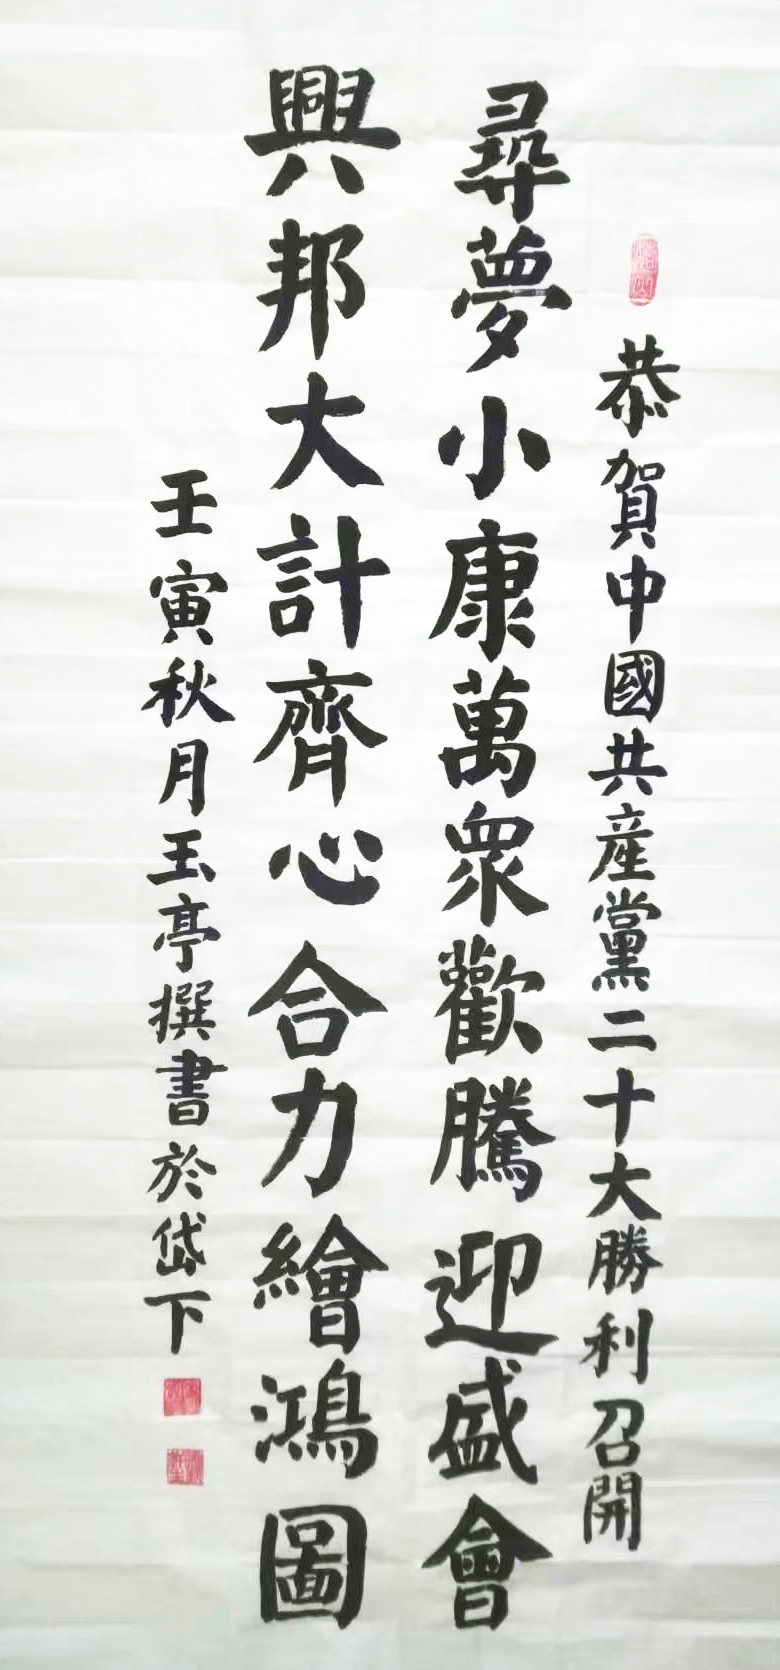 恭賀中國共産黨二十大勝利召開
尋夢小康萬眾歡騰迎盛會
興邦大計齊心合力繪鴻圖
壬寅秋月玉亭撰書於岱下